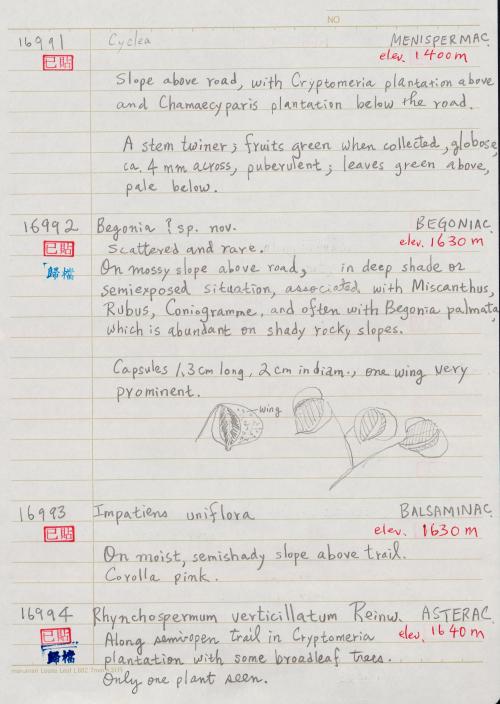 NO
16991 Cyclea MENISPERMAC.
已貼 elev. 1400 m
Slope above road, with Cryptomeria plantation above
and Chamaecyparis plantation below the road.
A stem twiner; fruits green when collected, globose,
ca. 4 mm across, puberulent; leaves green above,
pale below.
16992 Begonia ? sp. nov. BEGONIAC.
已貼 Scattered and rare. elev. 1630 m
歸檔 On mossy slope above road, in deep shade or
semiexposed situation, associated with Miscanthus,
Rubus, Coniogramme, and often with Begonia palmata,
which is abundant on shady rocky slopes.
Capsules 1.3 cm long, 2 cm in diam., one wing very
prominent.
wing
16993 Impatiens uniflora BALSAMINAC.
已貼 elev. 1630 m
On moist, semishady slope above trail.
Corolla pink.
16994 Rhynchospermum verticillatum Reinw. ASTERAC.
已貼 Along semiopen trail in Cryptomeria elev. 1640 m
歸檔 plantation with some broadleaf trees.
Only one plant seen.